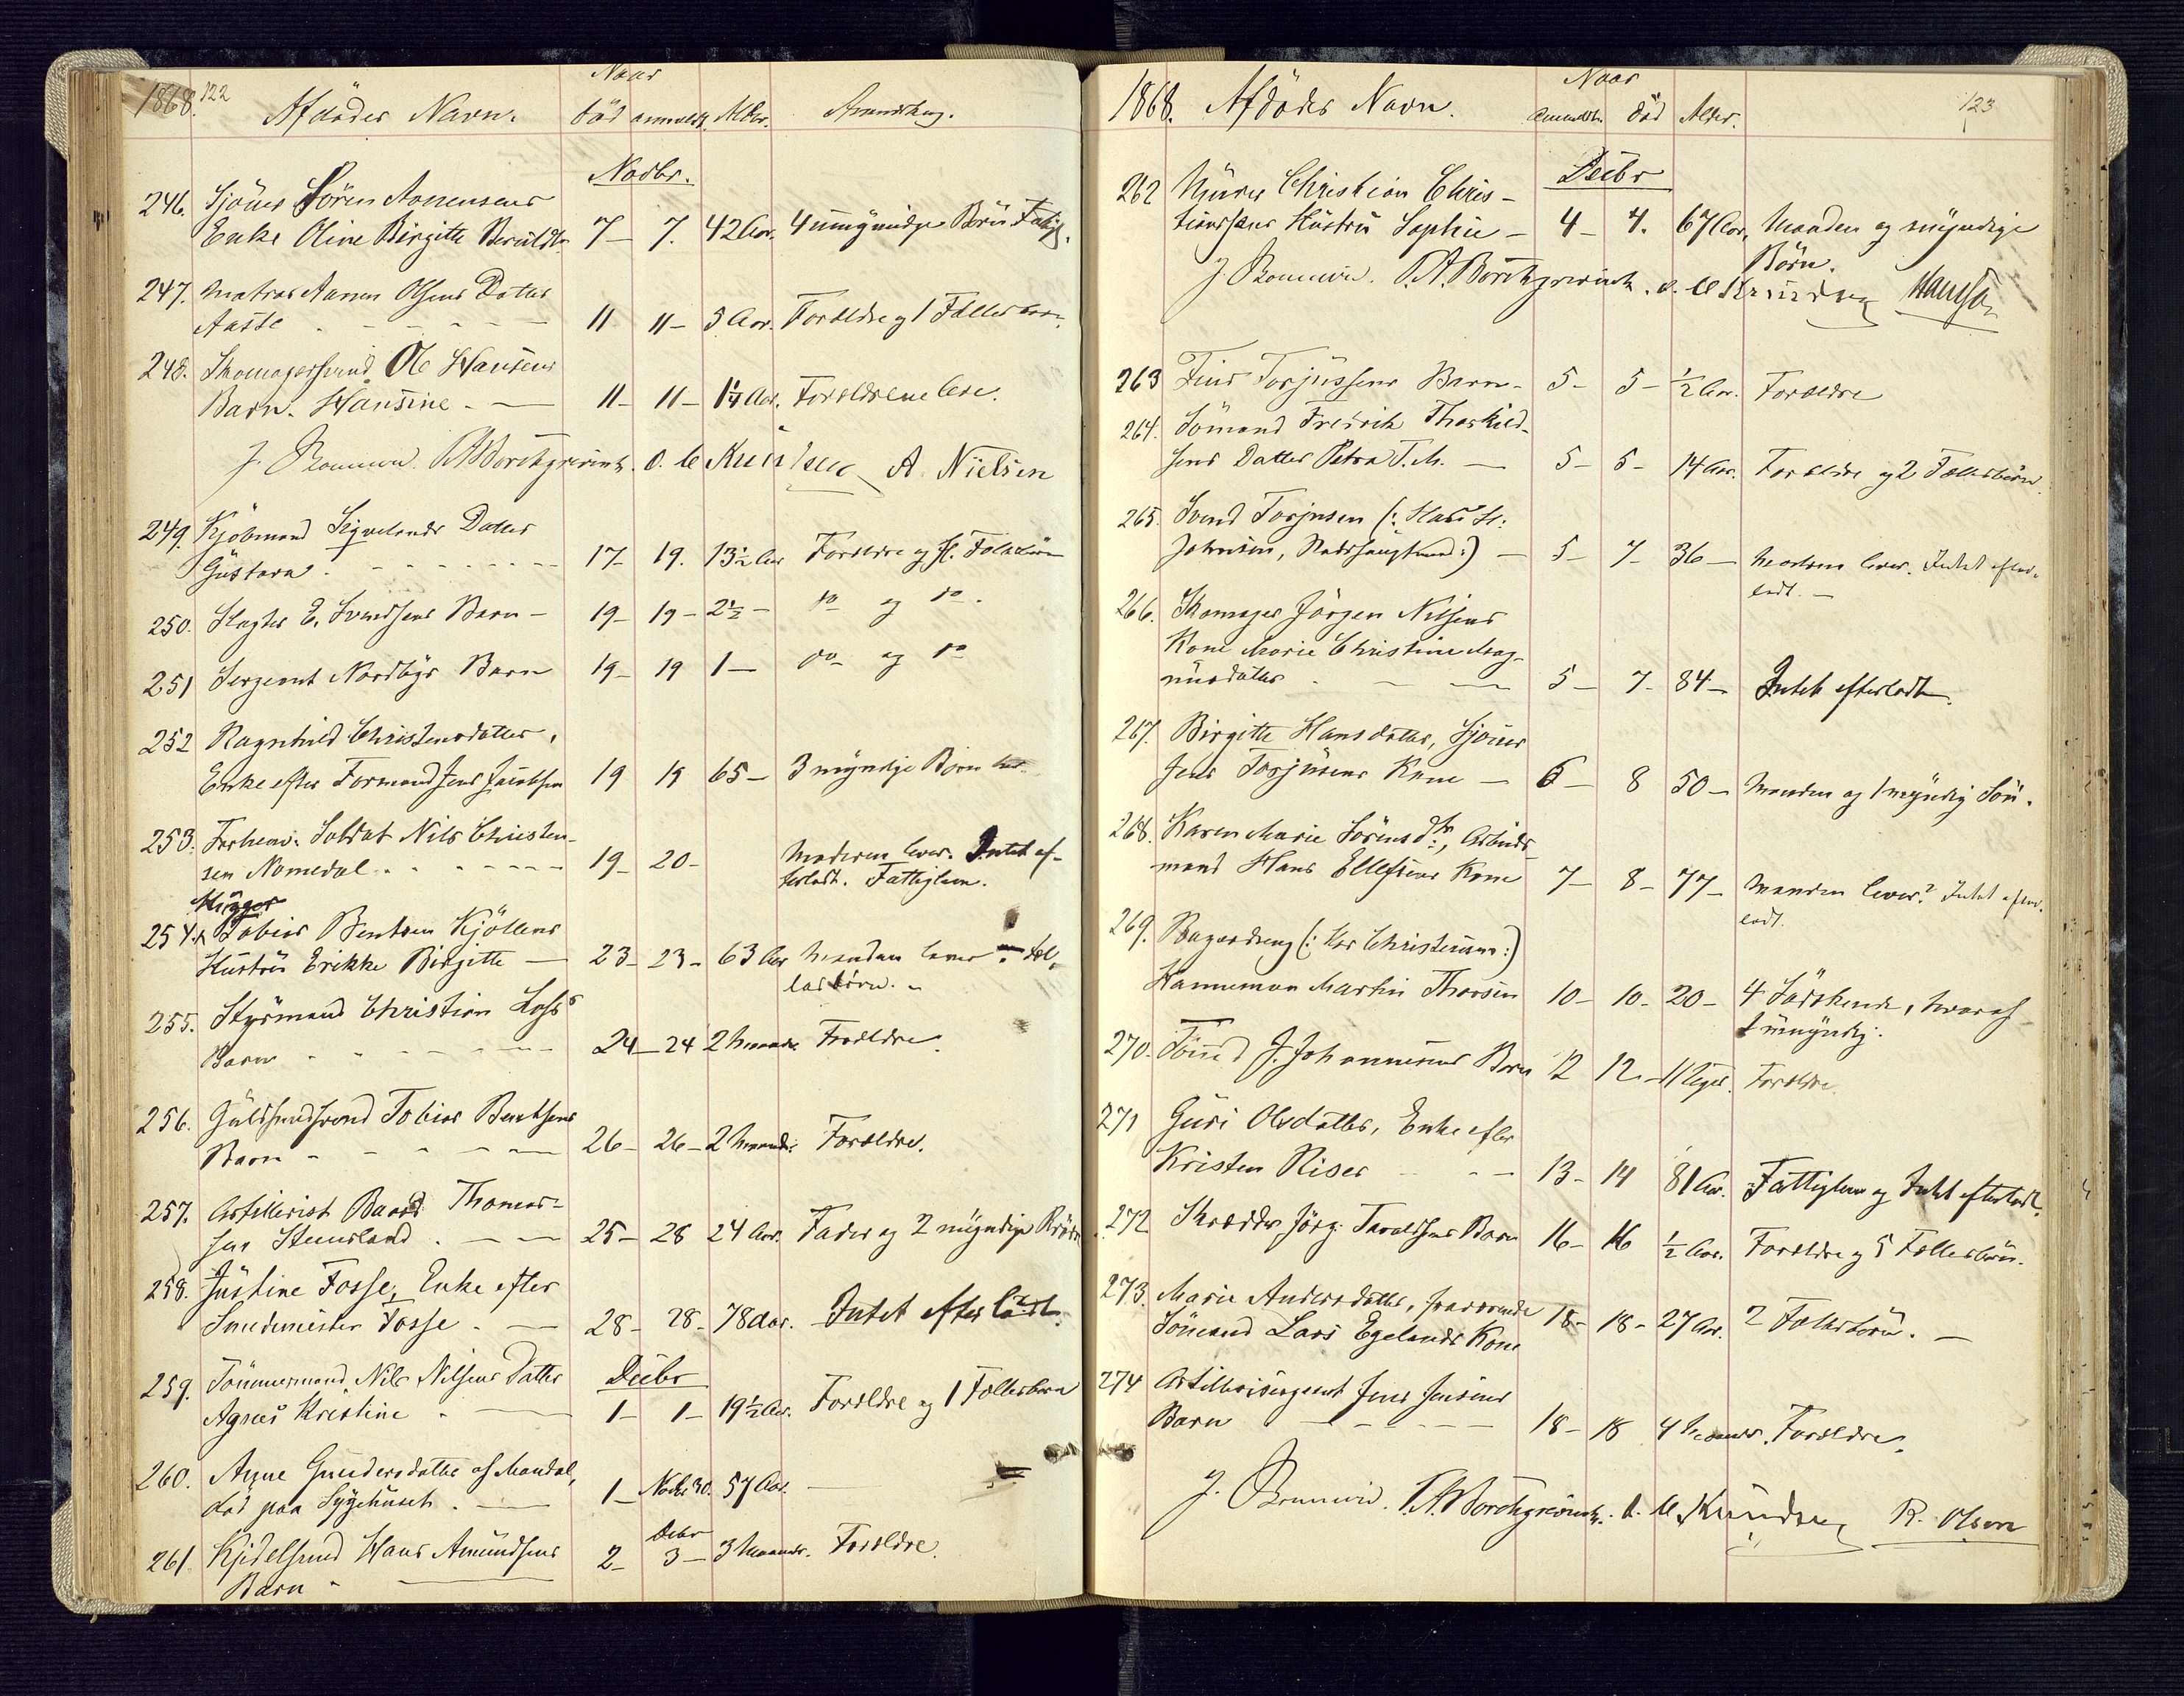 1868. 122
Afdødes Navn.
Naar
død anmeldt. Alder.
Anmærkng.
Novbr.
246. Sjouer Sören Aanensens
Enke Oline Birgitte 7 – 7. 42 Aar. 4 umyndige Börn
247. Matros Aanen Olsens Datter
Aasse 11 11 – 5 Aar. Forældre og 1 Fællesbarn.
248. Skomagersvend Ole Hansens
Barn Hansine – 11 – 11 – 1¼ Aar. Forældrene leve.
O. C. Knudsen A. Nielsen
249. Kjöbmand Sigvelands Datter
Gustava. 17 – 19. 13½ Aar Forældre og fl.
250. Slagter E. Svendsens Barn – 19 – 19 – 2½ – do og do.
251 Sergeant Nordbys Barn 19 – 19 1 – do og do
252 Ragnhild Christensdatter,
Enke efter Formand Jens Jacobsen 19 19 65 – 3 myndige Börn
253. Forhenv. Soldat Nils Christen-
sen Nomedal 19 – 20 – Moderen lever. Intet ef-
terladt. Fattiglem.
254. Tobias Bentsen Kjöllens
Hustru Erikke Birgitte – 23 – 23 – 63 Aar Manden lever. Fæl-
lesbörn.
255. Styrmand Christian
Barn 24 – 24 2 Maander Forældre.
256. Guldsmedsvend Tobias Bentsens
Barn 26 – 26 – 2 Maander. Forældre.
257. Artillerist Baard Thomas-
sen 25 – 28 24 Aar. Fader og 2 myndige
258. Justine Fosse, Enke efter
Smedmester Fosse 28 – 28 – 78 Aar. Intet efterladt.
Decbr
259. Tömmermand Nils Nilsens Datter
Agnes Kristine 1 – 1 – 19½ Aar. Forældre og 1 Fællesbarn
260. Anne Gundersdatter af Mandal,
död paa Sygehuset. 1 – Novbr 30. 57 Aar. –
261 Kjedelsmed Hans Amundsens
Barn 2 – Decbr 3 – 3 Maander. Forældre.
1868. Afdødes Navn.
Naar
anmeldt. död Alder.
123
Decbr
262 Murer Christian Chris-
tiansens Hustru Sophie – 4 – 4. 67 Aar. Manden og myndige
Börn.
O. C. Knudsen Hansen
263 Finn Torjussens Barn – 5 – 5 – ½ Aar. Forældre
264. Sömand Fredrik Thorkild-
sens Datter Petra T. M. – 5 – 5 – 14 Aar. Forældre og 2 Fællesbörn.
265. Svend Torjusen (:
Johnsen, :) – 5 – 7 – 36 – Moderen lever. Intet efter-
ladt. –
266. Skomager Jörgen Nilsens
Kone Marie Christine Mag-
nusdatter 5 – 7 – 84 – Intet efterladt.
267. Birgitte Hansdatter, Sjouer
Jens Torjusens Kone – 6 – 8 50 – Manden og 1 myndig Sön.
268. Karen Marie Sörensdtr:, Arbeids-
mand Hans Ellefsens Kone 7 – 8 – 77 – Manden lever? Intet efter-
ladt.
269. Bagerdreng (: hos Christensen :)
Hanneman Martin Thorsen 10 – 10 – 20 – 4 Södskende, hvoraf
1 umyndig.
270. J. Johannesens Barn 12 12 – 11 Dage. Forældre.
271 Guri Olsdatter, Enke efter
Kristen Riser – – 13 – 14 81 Aar. Fattiglem og Intet efterladt.
272 Skrædder Jörg. Taraldsens Barn 16 – 16 ½ Aar. Forældre og 5 Fællesbörn.
273. Marie Andersdatter, fraværende
Sömand Lars Egelands Kone 18 – 18 – 27 Aar. 2 Fællesbörn. –
274 Artillerisergeant Jens Jensens
Barn 18 – 18 4 Maander. Forældre.
O. C. Knudsen R. Olsen